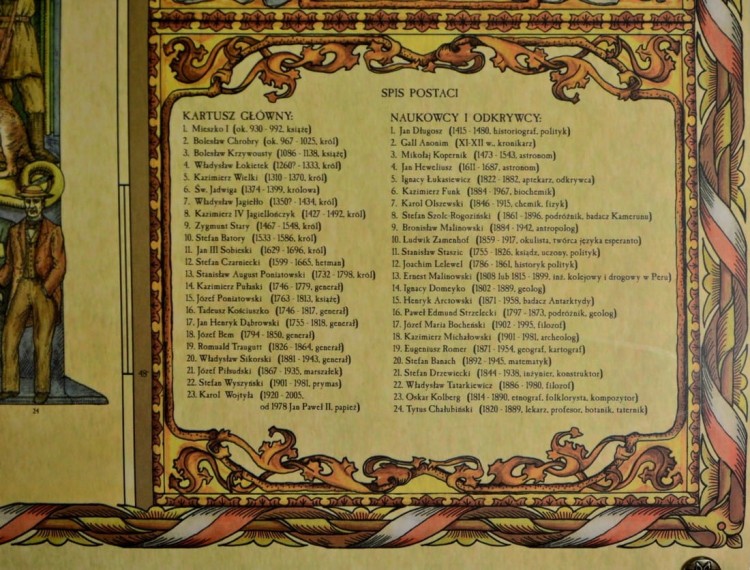 SPIS POSTACI
KARTUSZ GŁÓWNY:
1. Mieszko I (ok. 930 - 992, książę)
2. Bolesław Chrobry (ok. 967 - 1025, król)
3. Bolesław Krzywousty (1086 - 1138, książę)
4. Władysław Łokietek (1260? - 1333, król)
5. Kazimierz Wielki (1310 - 1370, król)
6. Św. Jadwiga (1374 - 1399, królowa)
7. Władysław Jagiełło (1350? - 1434, król)
8. Kazimierz IV Jagiellończyk (1427 - 1492, król)
9. Zygmunt Stary (1467 - 1548, król)
10. Stefan Batory (1533 - 1586, król)
11. Jan III Sobieski (1629 - 1696, król)
12. Stefan Czarniecki (1599 - 1665, hetman)
13. Stanisław August Poniatowski (1732 - 1798, król)
14. Kazimierz Pułaski (1746 - 1779, generał)
15. Józef Poniatowski (1763 - 1813, książę)
16. Tadeusz Kościuszko (1746 - 1817, generał)
17. Jan Henryk Dąbrowski (1755 - 1818, generał)
18. Józef Bem (1794 - 1850, generał)
19. Romuald Traugutt (1826 - 1864, generał)
20. Władysław Sikorski (1881 - 1943, generał)
21. Józef Piłsudski (1867 - 1935, marszałek)
22. Stefan Wyszyński (1901 - 1981, prymas)
23. Karol Wojtyła (1920 - 2005,
od 1978 Jan Paweł II, papież)
NAUKOWCY I ODKRYWCY:
1. Jan Długosz (1415 - 1480, historiograf, polityk)
2. Gall Anonim (XI-XII w., kronikarz)
3. Mikołaj Kopernik (1473 - 1543, astronom)
4. Jan Heweliusz (1611 - 1687, astronom)
5. Ignacy Łukasiewicz (1822 - 1882, aptekarz, odkrywca)
6. Kazimierz Funk (1884 - 1967, biochemik)
7. Karol Olszewski (1846 - 1915, chemik, fizyk)
8. Stefan Szolc-Rogoziński (1861 - 1896, podróżnik, badacz Kamerunu)
9. Bronisław Malinowski (1884 - 1942, antropolog)
10. Ludwik Zamenhof (1859 - 1917, okulista, twórca języka esperanto)
11. Stanisław Staszic (1755 - 1826, ksiądz, uczony, polityk)
12. Joachim Lelewel (1786 - 1861, historyk polityk)
13. Ernest Malinowski (1808 lub 1815 - 1899, inż. kolejowy i drogowy w Peru)
14. Ignacy Domeyko (1802 - 1889, geolog)
15. Henryk Arctowski (1871 - 1958, badacz Antarktydy)
16. Paweł Edmund Strzelecki (1797 - 1873, podróżnik, geolog)
17. Józef Maria Bocheński (1902 - 1995, filozof)
18. Kazimierz Michałowski (1901 - 1981, archeolog)
19. Eugeniusz Romer (1871 - 1954, geograf, kartograf)
20. Stefan Banach (1892 - 1945, matematyk)
21. Stefan Drzewiecki (1844 - 1938, inżynier, konstruktor)
22. Władysław Tatarkiewicz (1886 - 1980, filozof)
23. Oskar Kolberg (1814 - 1890, etnograf, folklorysta, kompozytor)
24. Tytus Chałubiński (1820 - 1889, lekarz, profesor, botanik, taternik)
24